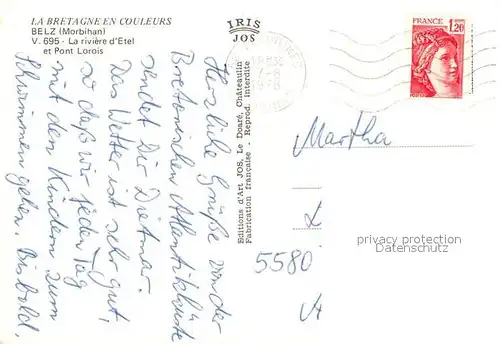 LA BRETAGNE EN COULEURS
BELZ (Morbihan)
V. 695 - La rivière d'Etel
et Pont Lorois
IRIS
JOS
FRANCE
1,20
Herzliche Grüße von der
Bretonischen Atlantikküste
sendet Dir Dietmar.
Das Wetter ist sehr gut,
so daß wir jeden Tag
mit den Kindern zum
Schwimmen gehen. Bis bald,
Editions d'Art JOS, Le Doaré, Châteaulin
Fabrication française - Reprod. interdite
Martha
5580
privacy protection
Datenschutz